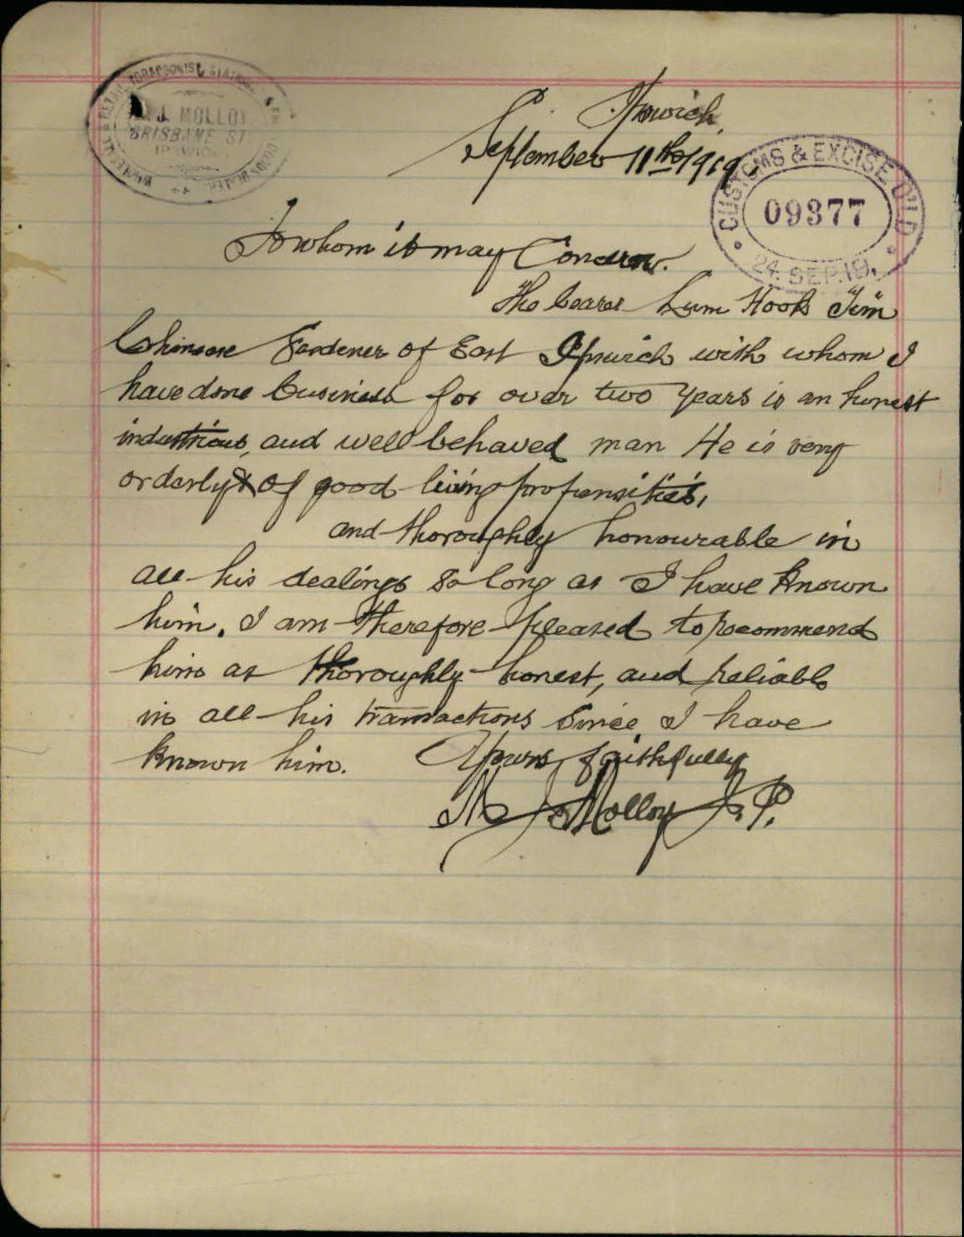 M.J. MOLLOY
BRISBANE ST
IPSWICH
Ipswich
September 11th 1919
CUSTOMS & EXCISE Q'LD
09377
24. SEP. 19
To whom it may Concern.
The bearer Lum Hook "Jim"
Chinese Gardener of East Ipswich with whom I
have done business for over two years is an honest
industrious, and well behaved man He is very
orderly & of good living propensities,
and thoroughly honourable in
all his dealings so long as I have known
him. I am therefore pleased to recommend
him as thoroughly honest, and reliable
in all his transactions since I have
known him. Yours faithfully
M J Molloy J.P.